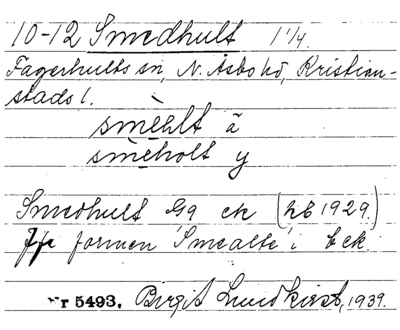 10-12 Smedhult 1 1/4.
Fagerhults sn, N. Åsbo hd, Kristian-
stads l.
smèhlt ä
smèholt y
Smedhult Gg ek (hE 1929.)
Jfr formen Smealte i Eek.
Nr 5493. Birgit Lundkvist, 1939.